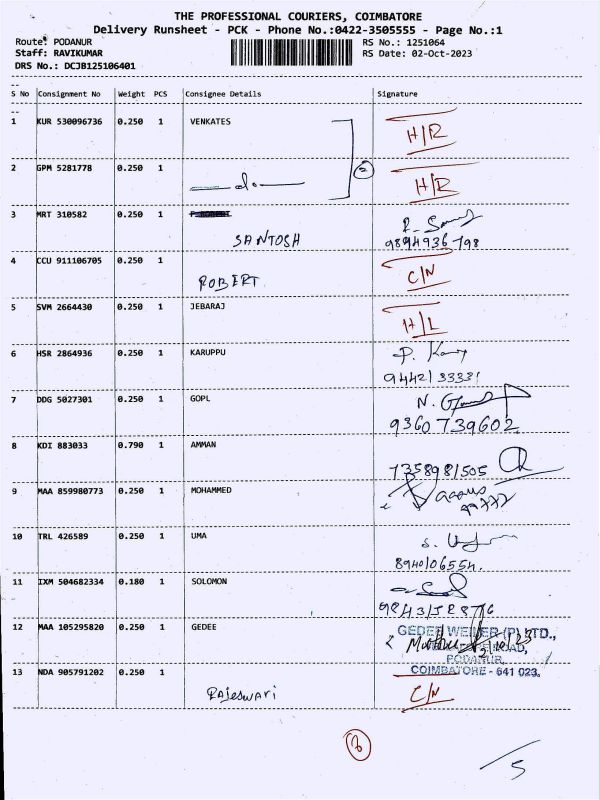 THE PROFESSIONAL COURIERS, COIMBATORE
Delivery Runsheet - PCK - Phone No.:0422-3505555 - Page No.:1
Route: PODANUR RS No.: 1251064
Staff: RAVIKUMAR RS Date: 02-Oct-2023
DRS No.: DCJB125106401
S No Consignment No Weight PCS Consignee Details Signature
1 KUR 530096736 0.250 1 VENKATES H/R
2 GPM 5281778 0.250 1 -do- H/R
3 MRT 310582 0.250 1
SANTOSH 9894936798
4 CCU 911106705 0.250 1 C/N
ROBERT
5 SVM 2664430 0.250 1 JEBARAJ H/L
6 HSR 2864936 0.250 1 KARUPPU
9442133331
7 DDG 5027301 0.250 1 GOPL
9360739602
8 KDI 883033 0.790 1 AMMAN
7358981505
9 MAA 859980773 0.250 1 MOHAMMED
10 TRL 426589 0.250 1 UMA
8940106554.
11 IXM 504682334 0.180 1 SOLOMON
12 MAA 105295820 0.250 1 GEDEE GEDEE WEILER (P) LTD.,
PODANUR,
13 NDA 905791202 0.250 1 COIMBATORE - 641 023.
Rajeswari C/N